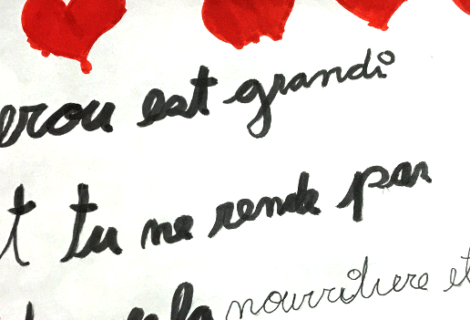 erou est grandi
t tu ne rende pas
la nourriture et